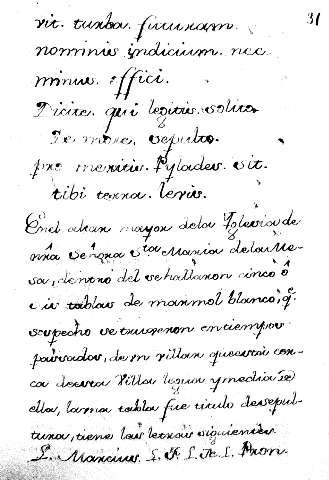 31
vit. turba. futuram.
nominis indicium. nec
minus. offici.
Dicite. qui legitis. solito
De more, sepulto.
pro meritis. Pylades. sit.
tibi terra. levis.
Enel altar mayor dela Yglesia de
nrâ señora sta Maria dela Me-
sa, dentro del se hallaron cinco ô
seis tablas de marmol blanco, q.e
sospecho se tuvieron en tiempos
passados, de m villan que està cer-
ca desta Villa legua y media de
ella, la una tabla fue titulo de sepul-
tura, tiene las letras siguientes
L. Marcius. L. F. L. R. L. Prom.